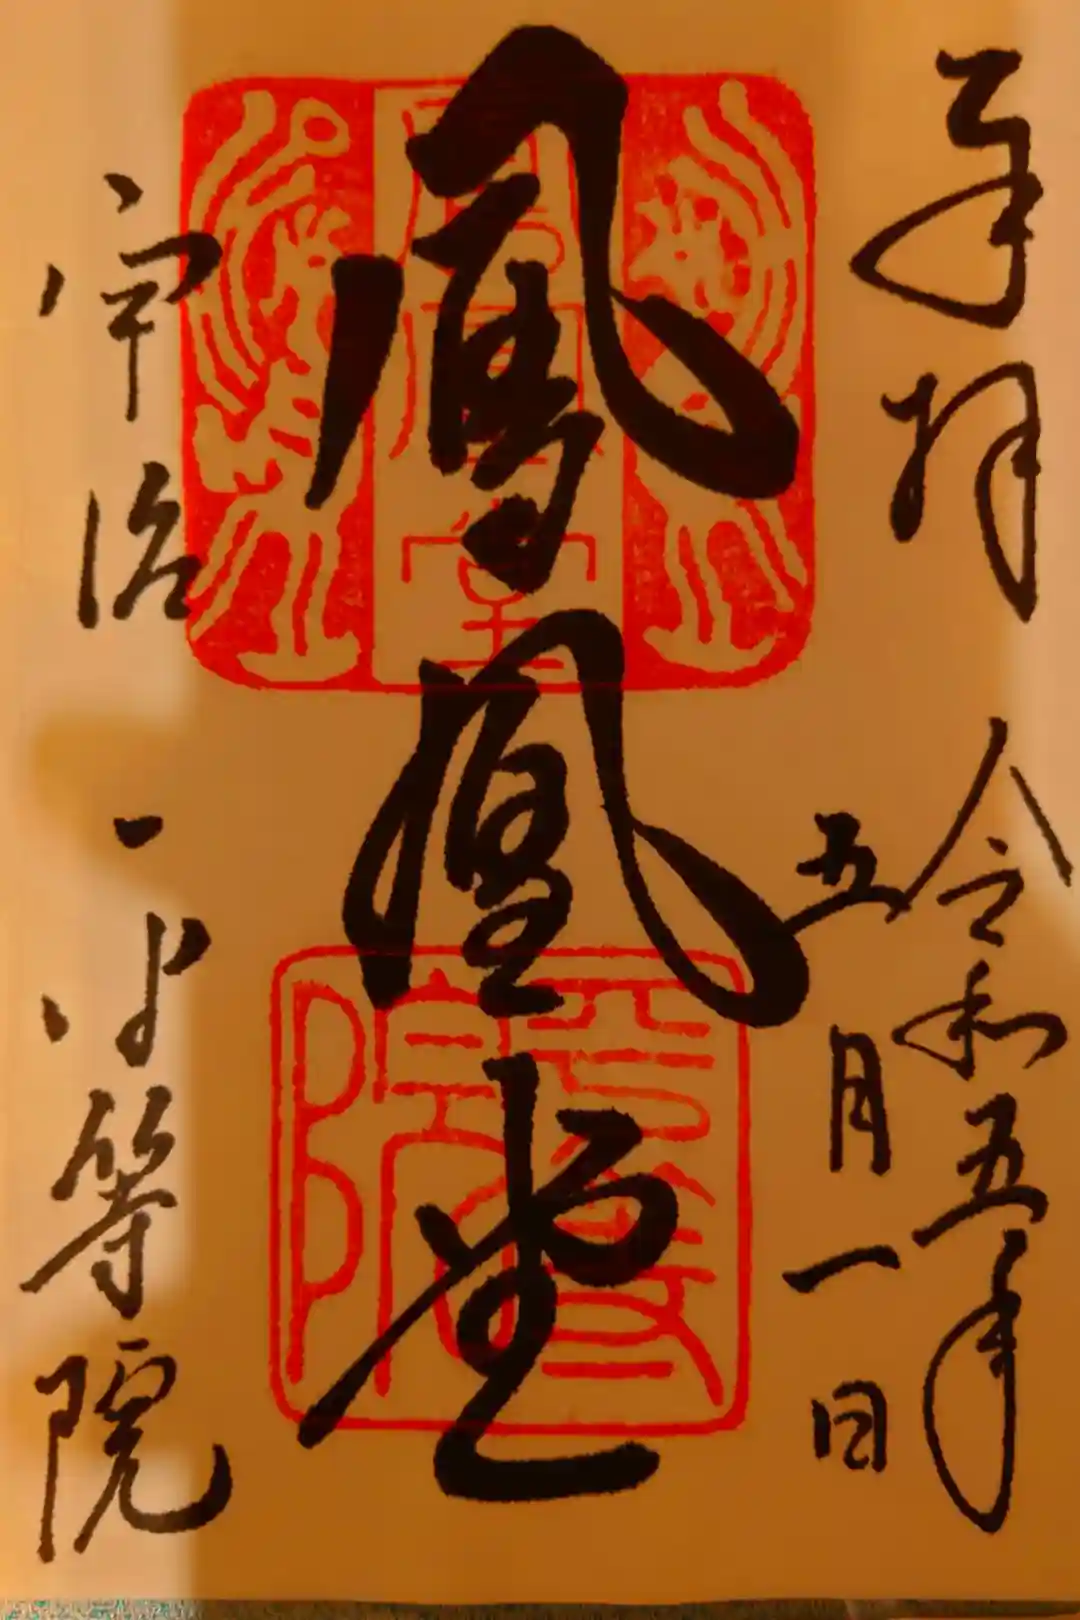 奉拝
令和五年
五月一日
鳳凰堂
宇治 平等院
鳳凰堂
平等院